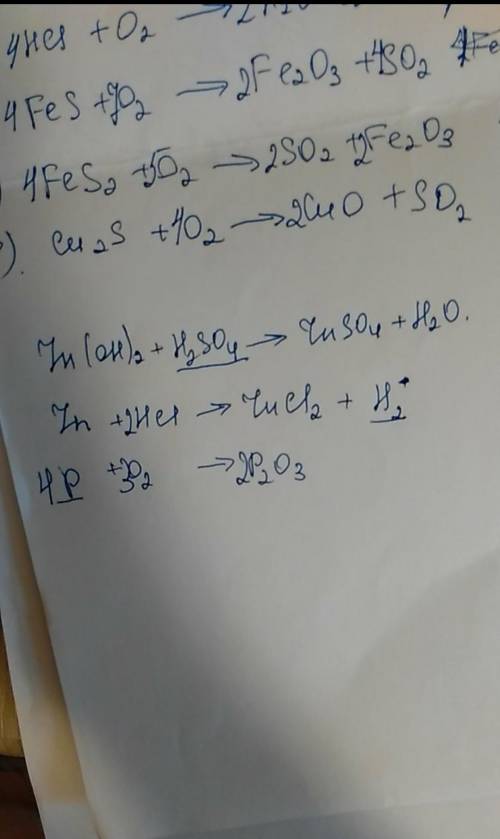 4HCl + O₂ →
4FeS + 7O₂ → 2Fe₂O₃ + 4SO₂
4FeS₂ + 5O₂ → 2SO₂ + 2Fe₂O₃
). Cu₂S + 4O₂ → 2CuO + SO₂
Zn(OH)₂ + H₂SO₄ → ZnSO₄ + H₂O.
Zn + 2HCl → ZnCl₂ + H₂
4P + 3O₂ → 2P₂O₃